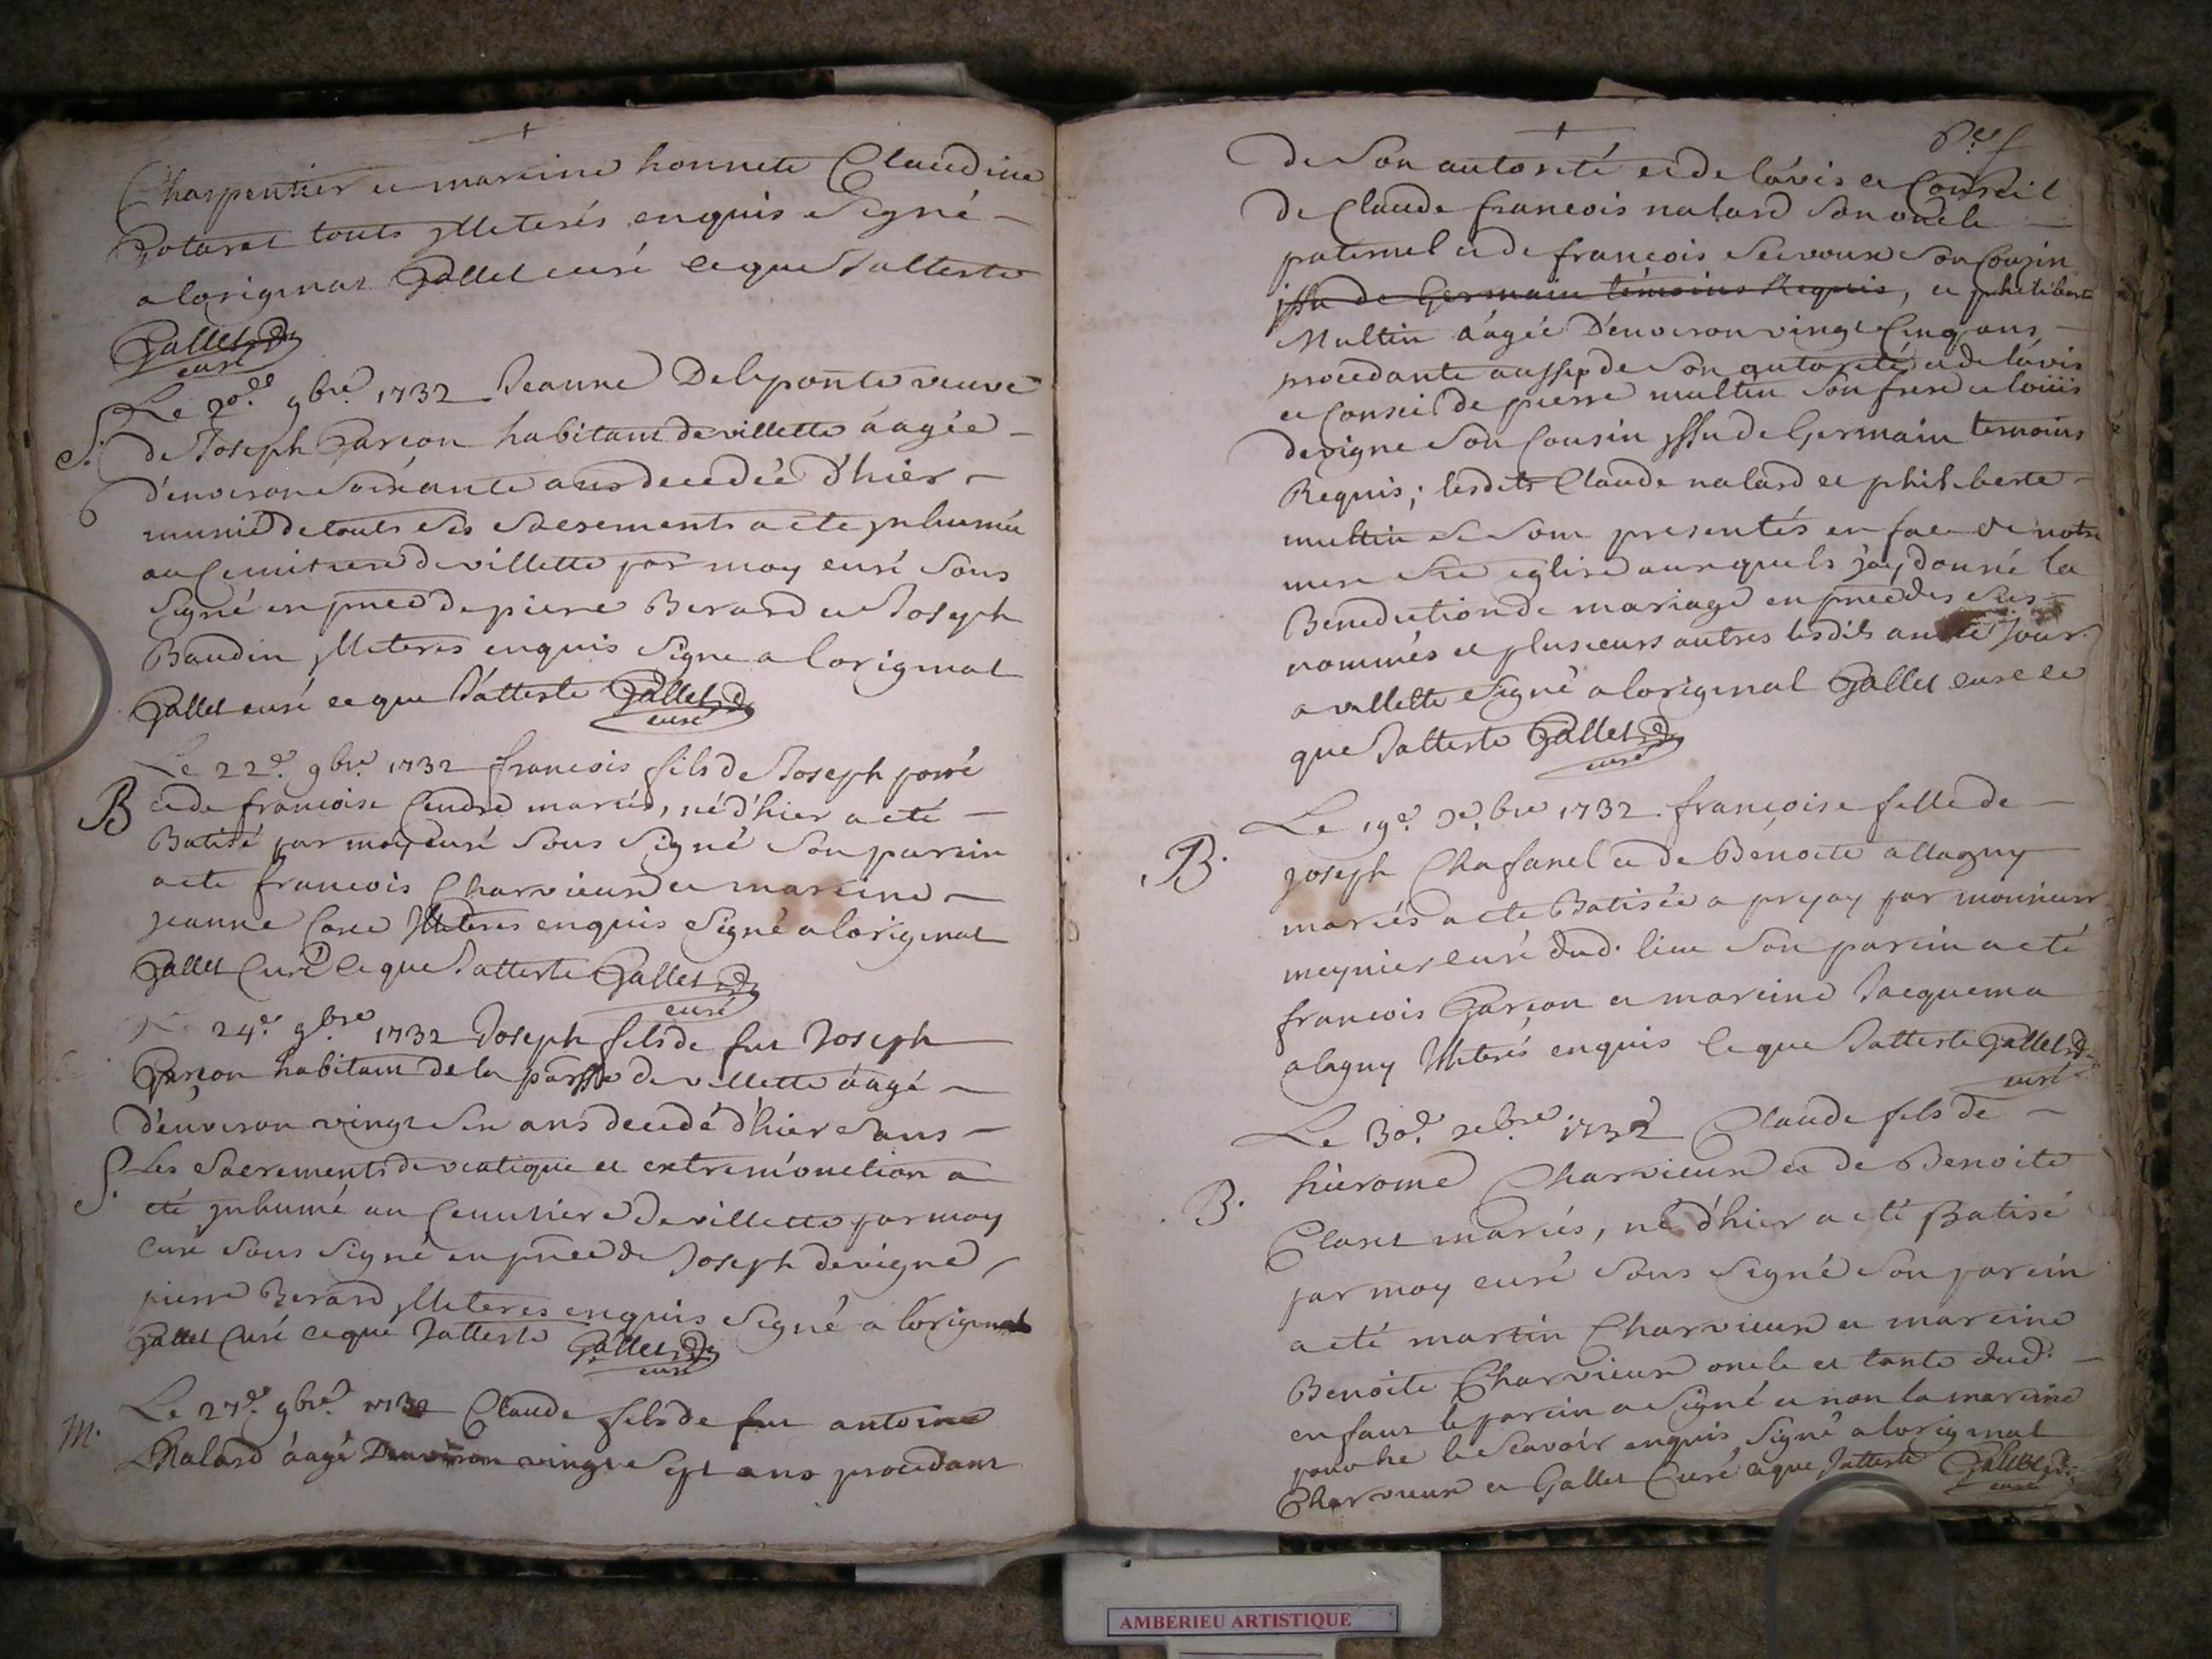 Charpentier et mareine honnete Claudine
touts jlleterés enquis signé
a loriginal Gallet curé ce que Jatteste
Gallet
curé
Le 20.e 9bre. 1732 Jeanne Deleponte veuve
S.
de Joseph Garçon habitant de villette áagée
d'environ soixante ans decedée d'hier
munie de touts ses sacrements a ete jnhumée
au Cemitiere de villette par moy curé sous
signé en pnce de piere Berard et Joseph
Baudin jlleteres enquis signe a loriginal
Gallet curé ce que J'atteste Gallet
curé
Le 22e. 9bre. 1732 francois fils de Joseph
B
et de francoise Cendre mariés, né d'hier a eté
Batisé par moy curé sous signé son parein
a eté francois Charvieux et mareine
jeanne jlleteres enquis signé a loriginal
Gallet Curé ce que Jatteste Gallet
curé
24e. 9bre 1732 Joseph fils de fut Joseph
Garçon habitant de la parsse de villette áagé
d'environ vingt six ans decedé d'hier sans
S.
Les sacrements de viatique et extrem'onction a
eté jnhumé au Cemitiere de villette par moy
curé sous signé en pnce de Joseph devigne
pierre Berard jlleteres enquis signé a loriginal
Gallet Curé ce que Jatteste Gallet
curé
Le 27e. 9bre. 1732 Claude fils de fut antoine
M.
Nalard áagé Denviron vingt sept ans procedant
de son autorité et de lávis et Conseil
de Claude francois nalard son oncle
paternel et de francois son Cousin
jssu de Germain témoins Requis, et philiberte
Multin áagée D'environ vingt Cinq ans
procedante aussy de son autorité et de lávis
et Conseil de pierre multin son frere et loüis
devigne son Cousin jssu de Germain temoins
Requis; lesdits Claude nalard et philiberte
multin se sont presentés en face de notre
mere Ste eglise auxquels j'ay donné la
Benediction de mariage en pnce des sus
nommés et plusieurs autres lesdits an et Jour
a villette signé a loriginal Gallet curé ce
que Jatteste Gallet
curé
Le 19e. Xe.bre 1732. françoise fille de
B.
joseph Chafanel et de Benoite allagny
mariés a ete Batisée a priay par monsieur
meynier curé dud. lieu son parein a eté
francois Garçon et mareine Jacquema
alagny Jlleterés enquis ce que Jatteste Gallet
curé
Le 30e. xebre 1732 Claude fils de
hierome Charvieux et de Benoite
B.
Claret mariés, né d'hier a eté Batisé
par moy curé sous signé son parein
a eté martin Charvieux et mareine
Benoite Charvieux oncle et tante dud.
enfant le parein a signé et non la mareine
pour ne le scavoir enquis signé a loriginal
Charvieux et Gallet Curé ce que Jatteste Gallet
curé
AMBERIEU ARTISTIQUE